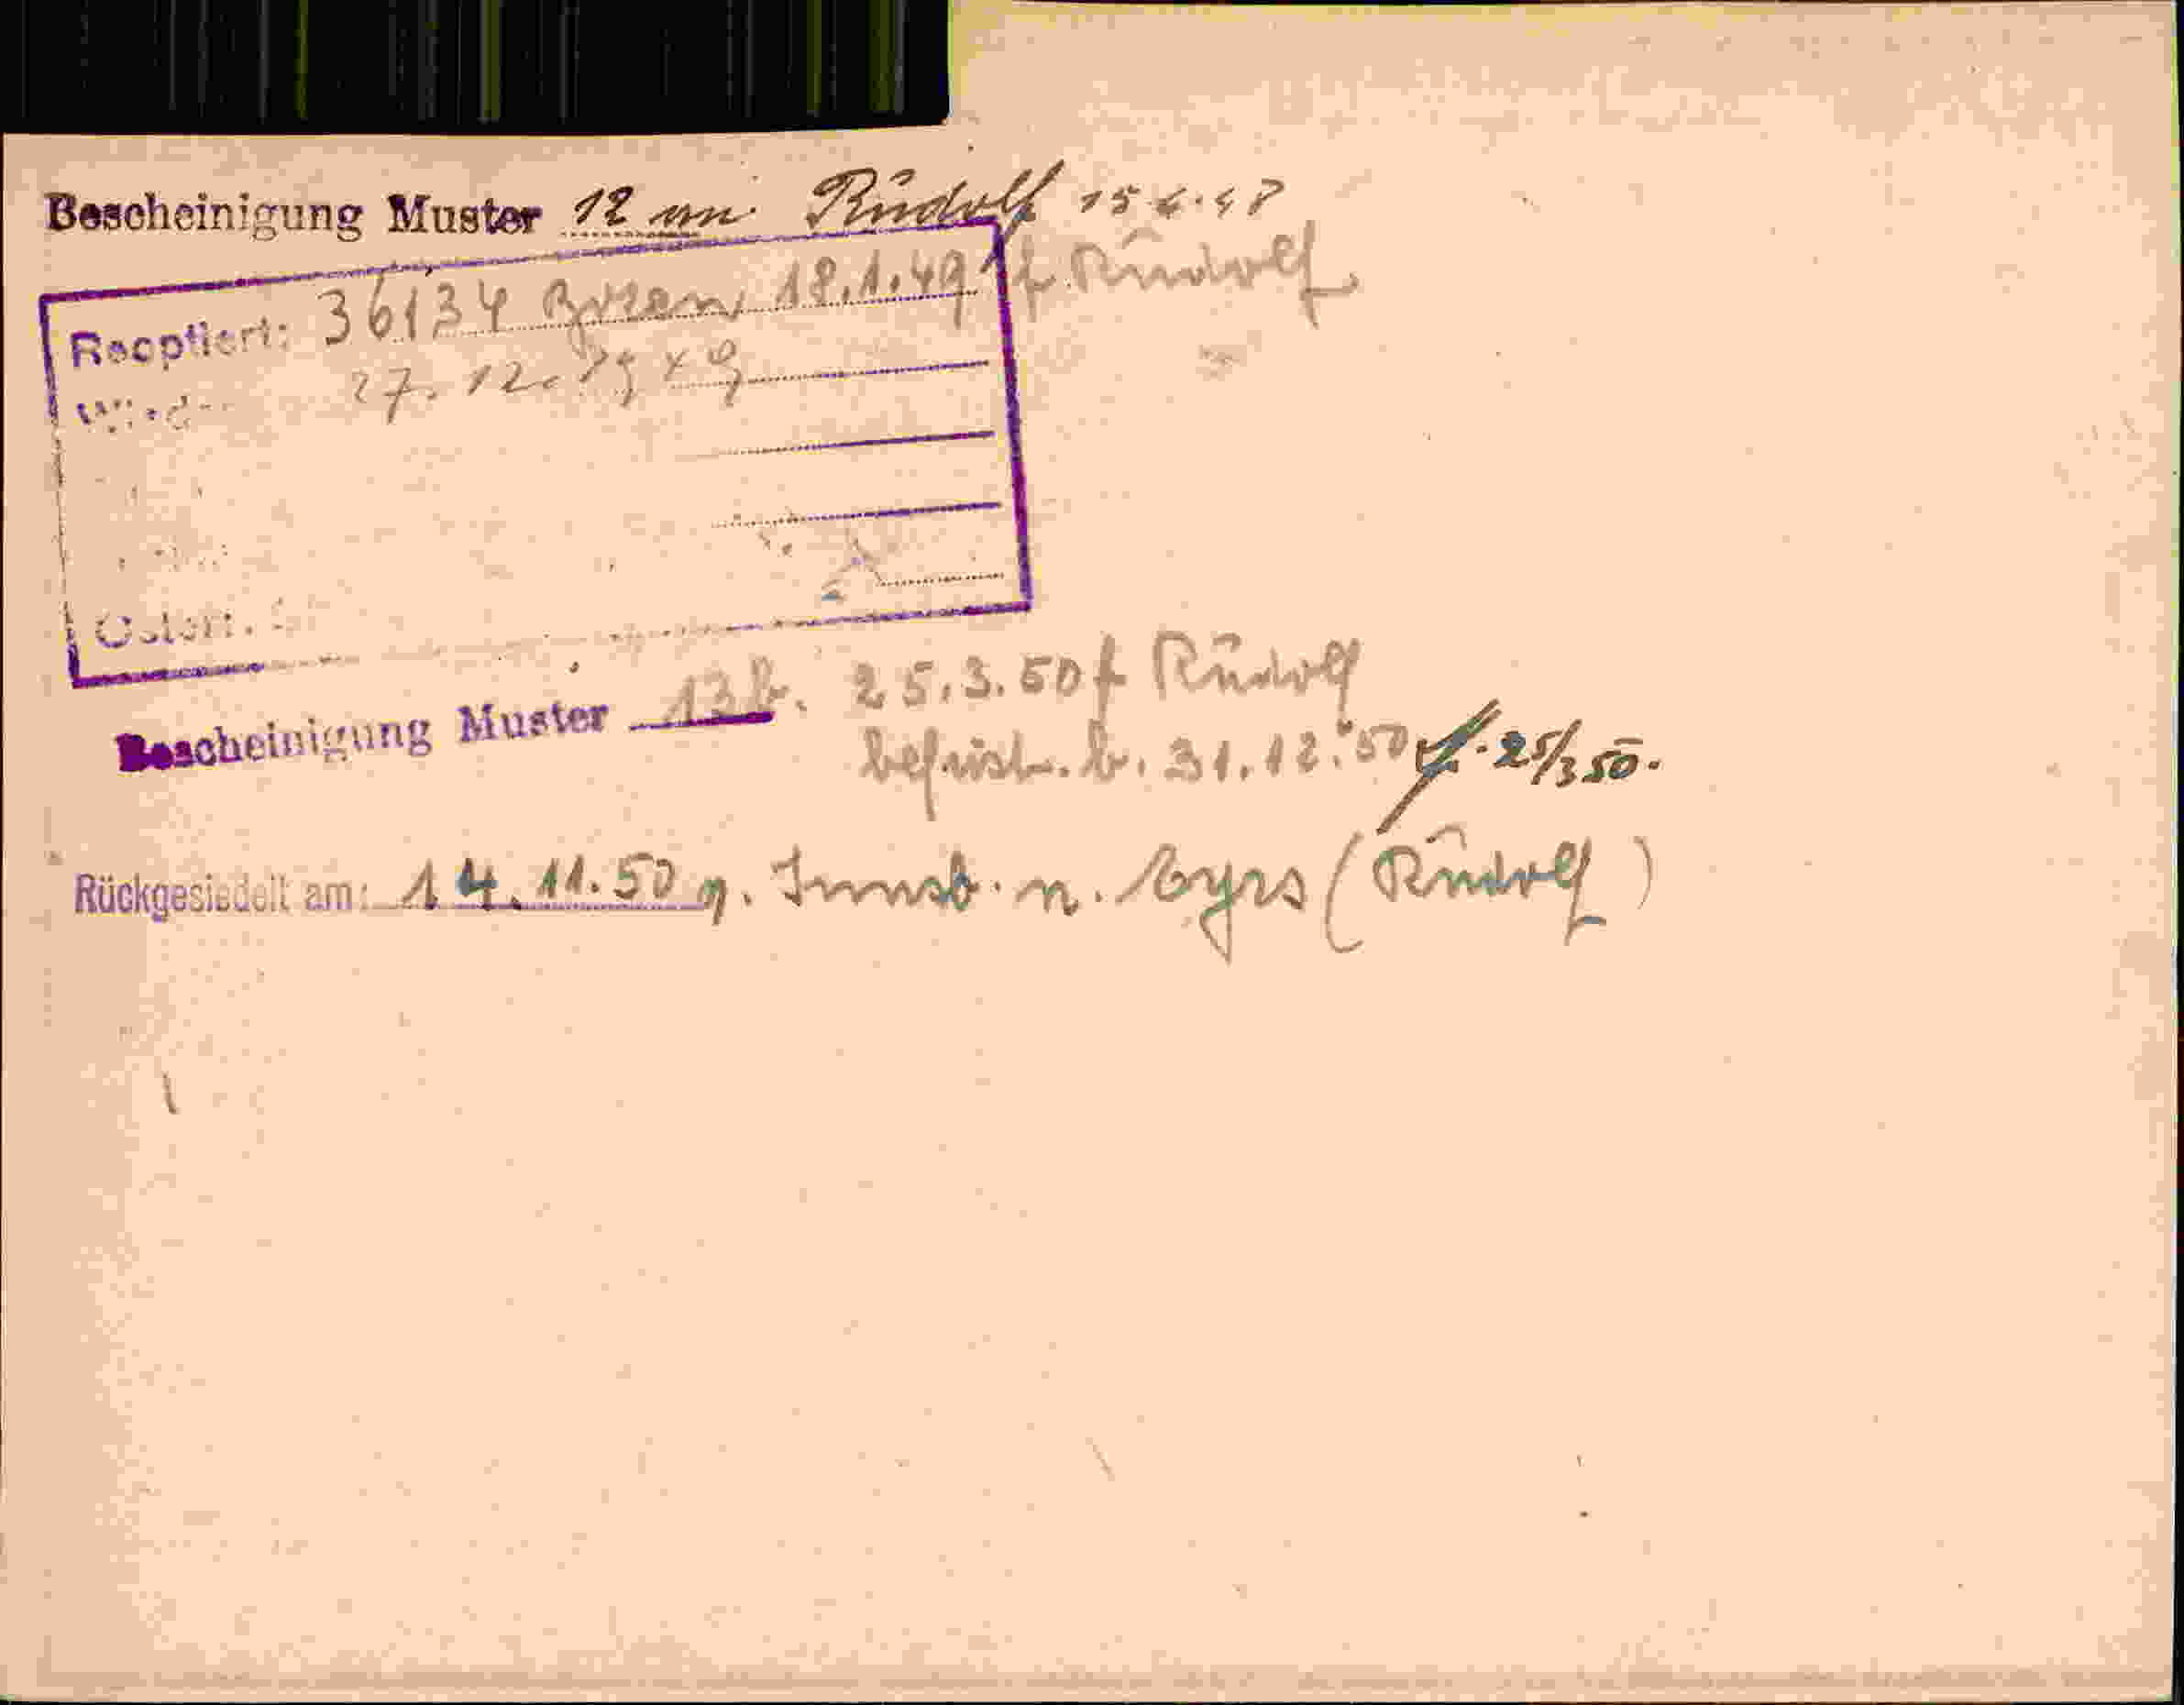 Bescheinigung Muster 12 Rudolf 15.6.48
Reoptiert: 36134 Bozen 18.1.49 f. Rudolf
27. 12. 1949
Bescheinigung Muster 13b. 25.3.50 f Rudolf
befrist. b. 31.12.50 25/3 50.
Rückgesiedelt am: 14.11.50 v. Innsb. n. Eyrs (Rudolf)